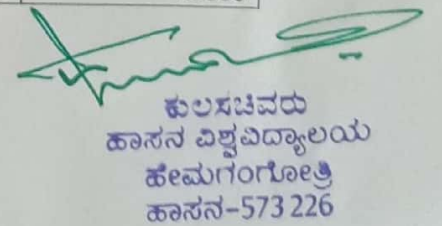 ಕುಲಸಚಿವರು
ಹಾಸನ ವಿಶ್ವವಿದ್ಯಾಲಯ
ಹೇಮಗಂಗೋತ್ರಿ
ಹಾಸನ-573 226